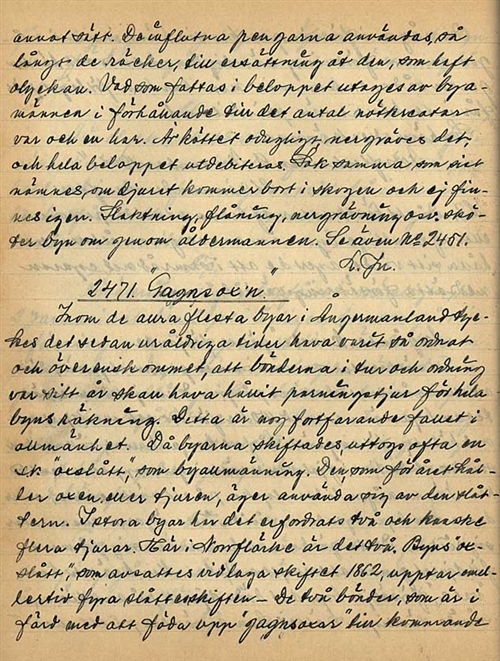 annat sätt. De influtna pengarna användas, så
långt de räcker, till ersättning åt den, som haft
olyckan. Vad som fattas i beloppet uttages av bya-
männen i förhållande till det antal nötkreatur
var och en har. Är köttet odugligt, nergräves det,
och hela beloppet utdebiteras. Lak samma, som sist
nämnes, om djuret kommer bort i skogen och ej fin-
nes igen. Slaktning, flåning, nergrävning o.s.v. skö-
ter byn om genom åldermannen. Se även No 2481.
2471. "Gagnsox'n."
Inom de allra flesta byar i Ångermanland tyc-
kes det sedan uråldriga tider hava varit så ordnat
och överenskommet, att bönderna i tur och ordning
var sitt år skall hava hållit parningstjur för hela
byns räkning. Detta är nog fortfarande fallet i
allmänhet. Då byarna skiftades, uttogs ofta en
s.k. "oxslått", som byallmänning. Den, som för året hål-
ler oxen, eller tjuren, äger använda sig av den slåt-
tern. I stora byar har det erfordrats två och kanske
flera tjurar. Här i Norrfläcke är det två. Byns "ox-
slått", som avsattes vid laga skiftet 1862, upptar emel-
lertid fyra slåtterskiften – De två bönder, som är i
färd med att föda upp "gagnsoxar" till kommande